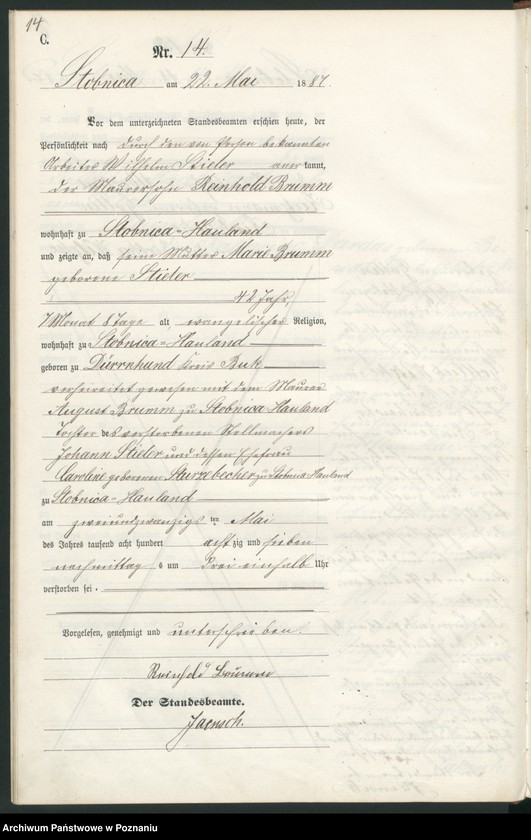 14
C.
Nr. 14.
Stobnica am 22. Mai 1887.
Vor dem unterzeichneten Standesbeamten erschien heute, der
Persönlichkeit nach durch den von Person bekannten
Arbeiter Wilhelm Stieler anerkannt,
der Maurersohn Reinhold Brumm
wohnhaft zu Stobnica-Hauland
und zeigte an, daß seine Mutter Marie Brumm
geborene Stieler
42 Jahr,
7 Monat 8 Tage alt, evangelischer Religion,
wohnhaft zu Stobnica-Hauland
geboren zu Kreis Buk
verheiratet gewesen mit dem Maurer
August Brumm zu Stobnica Hauland
Tochter des verstorbenen Stellmachers
Johann Stieler und dessen Ehefrau
Caroline geborenen Sturzebecher zu Stobnica Hauland
zu Stobnica-Hauland
am zweiundzwanzigsten Mai
des Jahres tausend acht hundert achtzig und sieben
nachmittags um drei einhalb Uhr
verstorben sei.
Vorgelesen, genehmigt und unterschrieben.
Reinhold Brumm
Der Standesbeamte.
Jaensch.
Archiwum Państwowe w Poznaniu